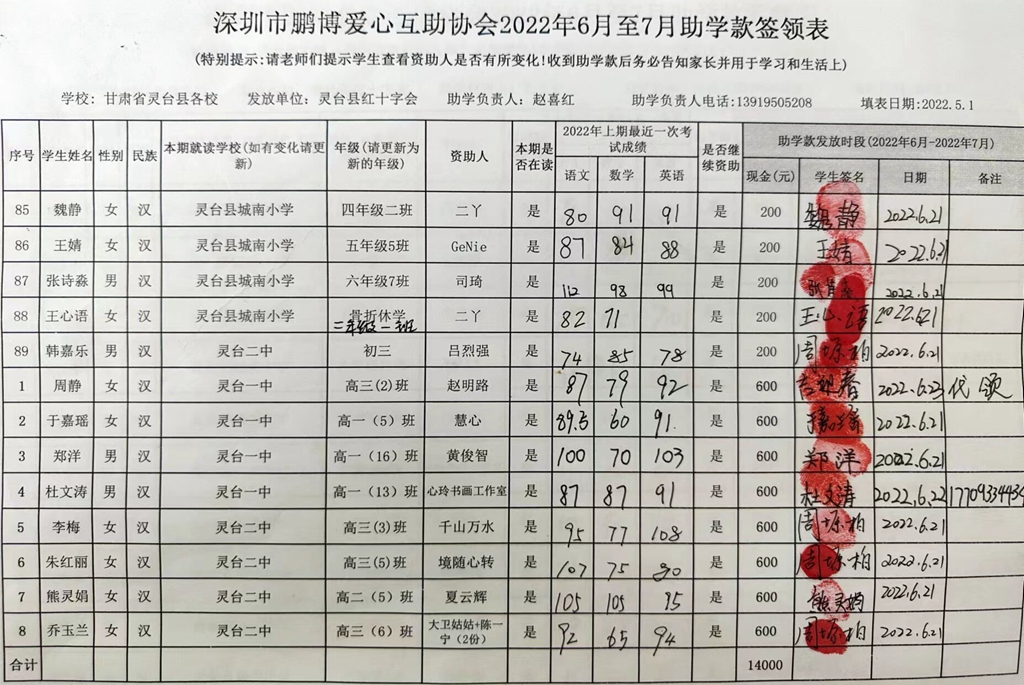 深圳市鹏博爱心互助协会2022年6月至7月助学款签领表
(特别提示:请老师们提示学生查看资助人是否有所变化!收到助学款后务必告知家长并用于学习和生活上)
学校：甘肃省灵台县各校 发放单位：灵台县红十字会 助学负责人：赵喜红 助学负责人电话:13919505208 填表日期:2022.5.1
序号 学生姓名 性别 民族 本期就读学校(如有变化请更新) 年级(请更新为新的年级) 资助人 本期是否在读 2022年上期最近一次考试成绩 是否继续资助 助学款发放时段(2022年6月-2022年7月)
语文 数学 英语 现金(元) 学生签名 日期 备注
85 魏静 女 汉 灵台县城南小学 四年级二班 二丫 是 80 91 91 是 200 魏静 2022.6.21
86 王婧 女 汉 灵台县城南小学 五年级5班 GeNie 是 87 84 88 是 200 王婧 2022.6.21
87 张诗淼 男 汉 灵台县城南小学 六年级7班 司琦 是 112 98 99 是 200 2022.6.21
88 王心语 女 汉 灵台县城南小学 骨折休学 二年级一班 二丫 是 82 71 是 200 王心语 2022.6.21
89 韩嘉乐 男 汉 灵台二中 初三 吕烈强 是 74 85 78 是 200 周琼柏 2022.6.21
1 周静 女 汉 灵台一中 高三(2)班 赵明路 是 87 79 92 是 600 2022.6.23 代领
2 于嘉瑶 女 汉 灵台一中 高一（5）班 慧心 是 89.5 60 91. 是 600 2022.6.21
3 郑洋 男 汉 灵台一中 高一（16）班 黄俊智 是 100 70 103 是 600 郑洋 2022.6.21
4 杜文涛 男 汉 灵台一中 高一（13）班 心玲书画工作室 是 87 87 91 是 600 杜文涛 2022.6.22 17709334934
5 李梅 女 汉 灵台二中 高三(3)班 千山万水 是 95 77 108 是 600 周琼柏 2022.6.21
6 朱红丽 女 汉 灵台二中 高三(5)班 境随心转 是 107 75 90 是 600 周琼柏 2022.6.21
7 熊灵娟 女 汉 灵台二中 高二（5）班 夏云辉 是 105 105 95 是 600 熊灵娟 2022.6.21
8 乔玉兰 女 汉 灵台二中 高三（6）班 大卫姑姑+陈一宁（2份） 是 92 65 94 是 600 周琼柏 2022.6.21
合计 14000